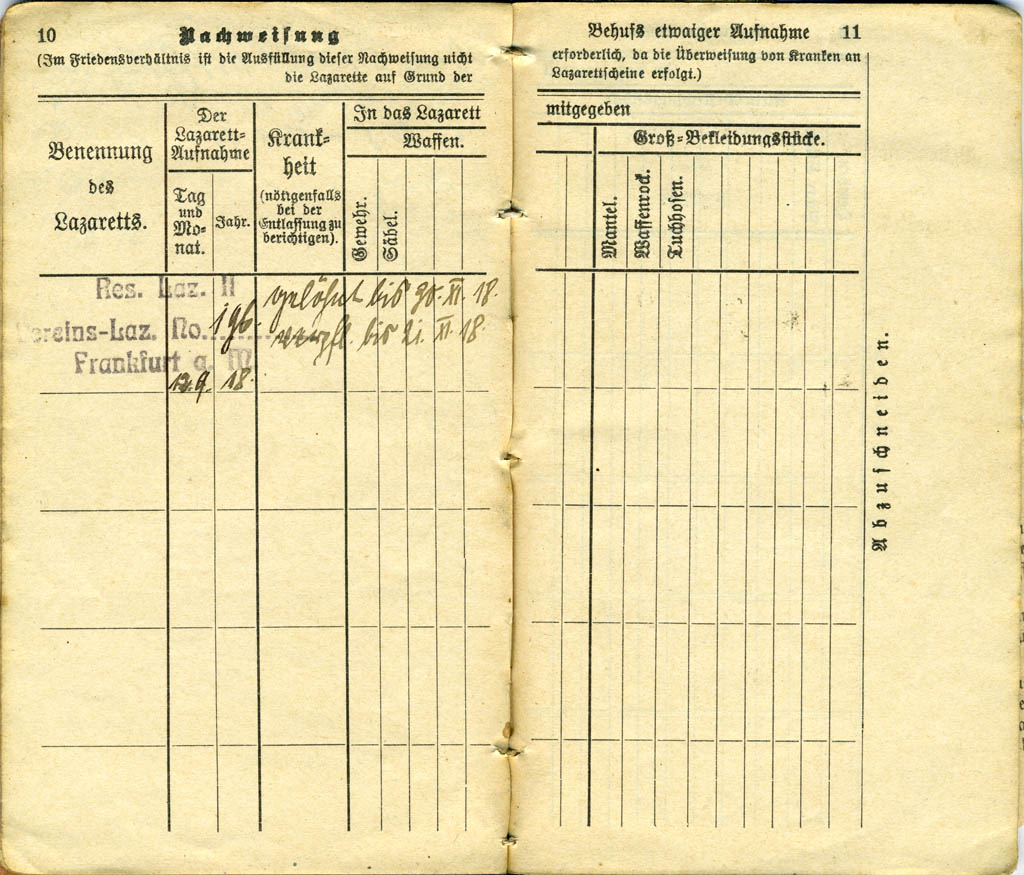 10
Nachweisung
(Im Friedensverhältnis ist die Ausfüllung dieser Nachweisung nicht
die Lazarette auf Grund der
Benennung
des
Lazaretts.
Der
Lazarett=
Aufnahme
Tag
und
Mo=
nat.
Jahr.
Krank=
heit
(nötigenfalls
bei der
Entlassung zu
berichtigen).
In das Lazarett
Waffen.
Gewehr.
Säbel.
Res. Laz. II
Vereins-Laz. No.
Frankfurt a. M
gelöhnt bis 20. XI. 18.
verpfl. bis 21. XI. 18.
9. 18.
Behufs etwaiger Aufnahme 11
erforderlich, da die Überweisung von Kranken an
Lazarettscheine erfolgt.)
mitgegeben
Groß=Bekleidungsstücke.
Mantel.
Waffenrock.
Tuchhosen.
Abzuschneiden.